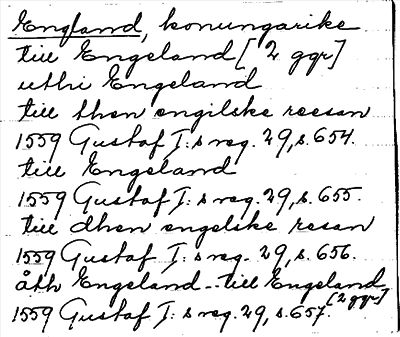 England, konungarike
till Engeland [2 ggr]
uthi Engeland
till then engilske reesan
1559 Gustaf I:s reg. 29, s. 654.
till Engeland
1559 Gustaf I:s reg. 29, s. 655.
till dhen engelske resan
1559 Gustaf I:s reg. 29, s. 656.
åth Engeland - till Engeland [2 ggr]
1559 Gustaf I:s reg. 29, s. 657.